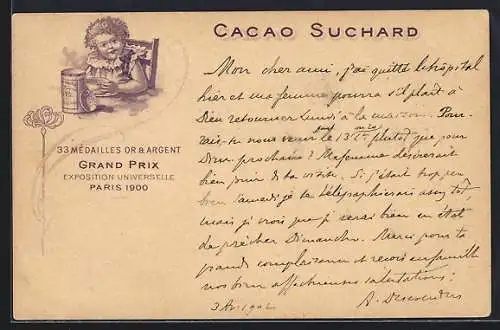 CACAO SUCHARD
33 MÉDAILLES OR & ARGENT
GRAND PRIX
EXPOSITION UNIVERSELLE
PARIS 1900
Mon cher ami, j'ai quitté l'hôpital
hier et ma femme pourra s'il plaît à
Dieu retourner lundi à la maison. Pour-
rais-tu nous venir le 13 plutôt que pour
Dim. prochain? Ma femme désirerait
bien jouir de ta visite. Si j'était trop
samedi je te télégraphierais assez tôt,
mais je crois que je serai bien en état
de prêcher Dimanche. Merci pour ta
grande complaisance et reçois en famille
nos bien affectueuses salutations:
3 1902